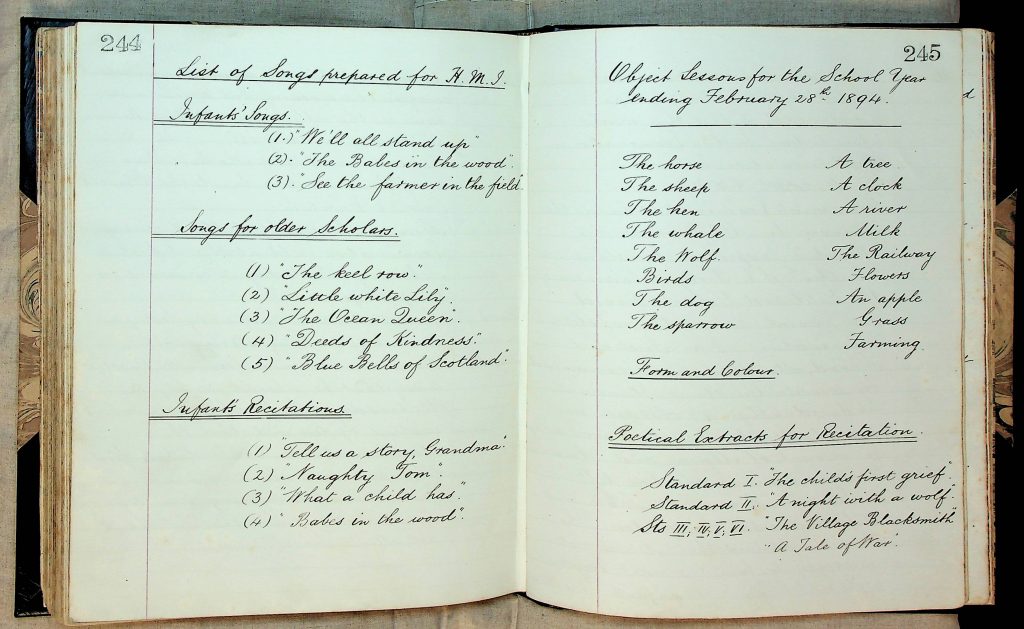 244
List of Songs prepared for H.M.I.
Infants' Songs.
(1.) "We'll all stand up"
(2). "The Babes in the wood".
(3). "See the farmer in the field"
Songs for older Scholars.
(1) "The keel row".
(2) "Little white Lily".
(3) "The Ocean Queen".
(4) "Deeds of Kindness".
(5) "Blue Bells of Scotland".
Infant's Recitations
(1) "Tell us a story, Grandma".
(2) "Naughty Tom"
(3) "What a child has".
(4) "Babes in the wood".
245
Object Lessons for the School Year
ending February 28th 1894.
The horse A tree
The sheep A clock
The hen A river
The whale Milk
The Wolf. The Railway
Birds Flowers
The dog An apple
The sparrow Grass
Farming.
Form and Colour.
Poetical Extracts for Recitation.
Standard I. "The child's first grief".
Standard II. "A night with a wolf".
Sts III, IV, V, VI. "The Village Blacksmith"
"A Tale of War".
d